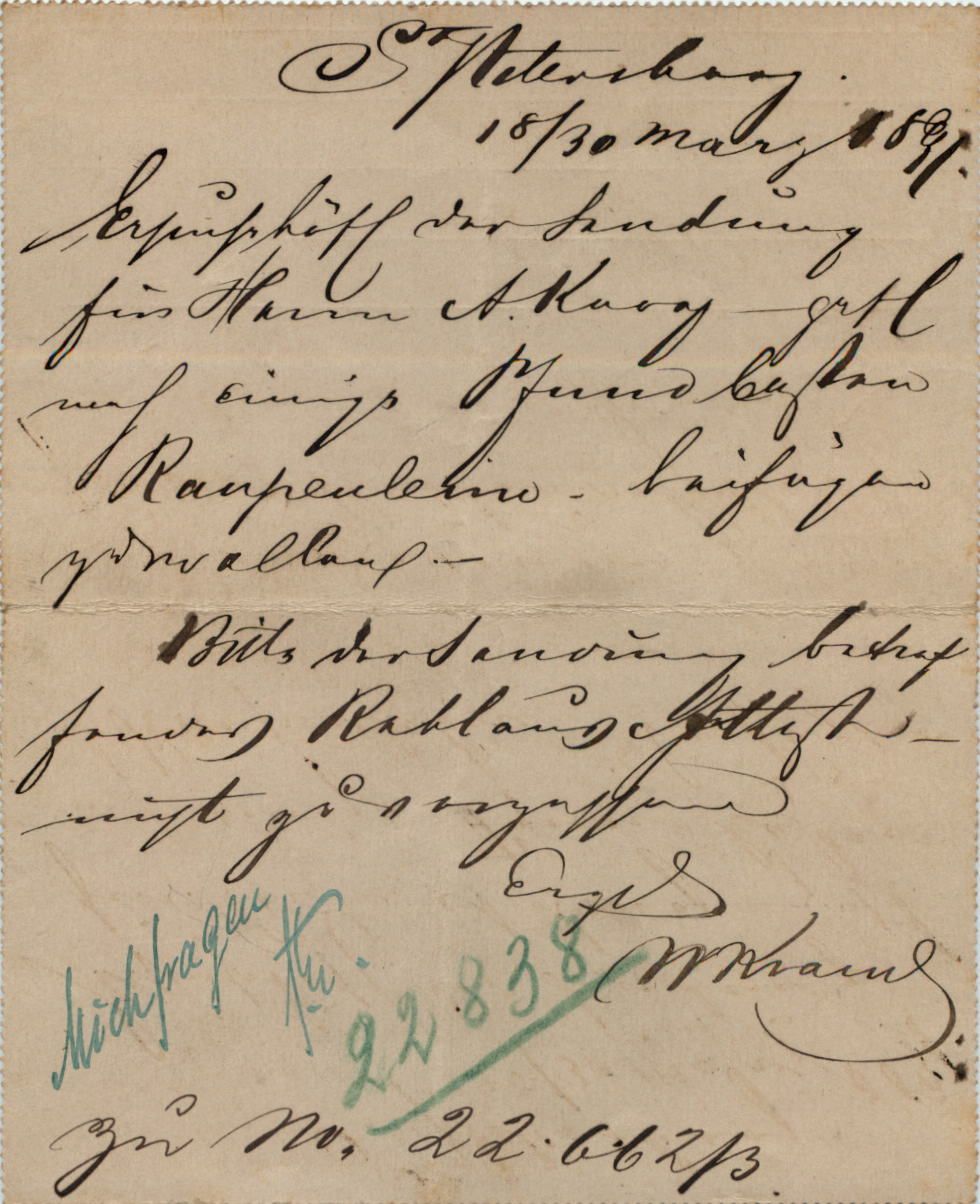 St Petersburg.
18/30 März 1891.
Ersuche höfl der Sendung
für Herrn A. gefl
noch einige Pfund besten
Raupenleim - beifügen
zu wollen. -
Bitte der Sendung betref
fendes Reblaus Attest -
nicht zu vergessen
Ergb
W Kramer
Mich fragen
22838
zu No. 22.662/3